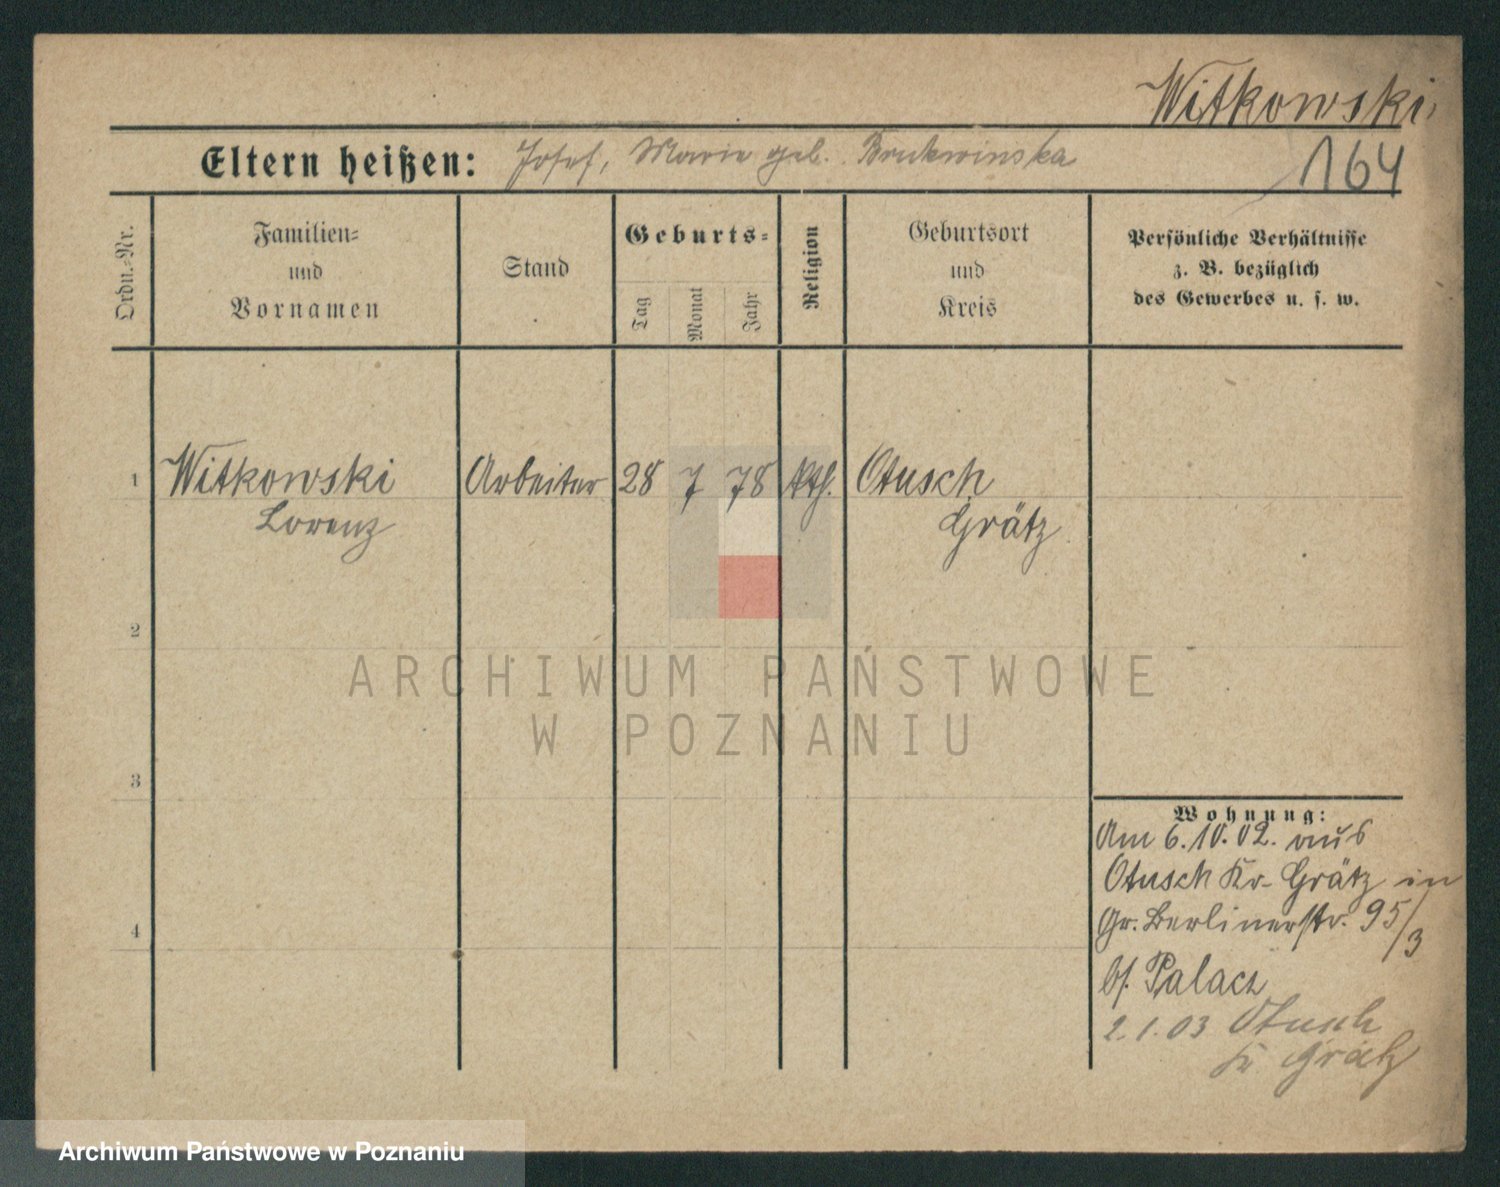 Witkowski,
164
Eltern heißen: Josef, Marie geb. Brukwinska
Ordn.-Nr.
Familien-
und
Vornamen
Stand
Geburts-
Tag
Monat
Jahr
Religion
Geburtsort
und
Kreis
Persönliche Verhältnisse
z. B. bezüglich
des Gewerbes u. s. w.
1 Witkowski Arbeiter 28 7 78 kth. Otusch
Lorenz Grätz
2
ARCHIWUM PAŃSTWOWE
W POZNANIU
3
4
Wohnung:
Am 6.10.02. aus
Otusch Kr. Grätz in
Gr. Berlinerstr. 95/3
b/. Palacz
2.1.03 Otusch
Kr Grätz
Archiwum Państwowe w Poznaniu